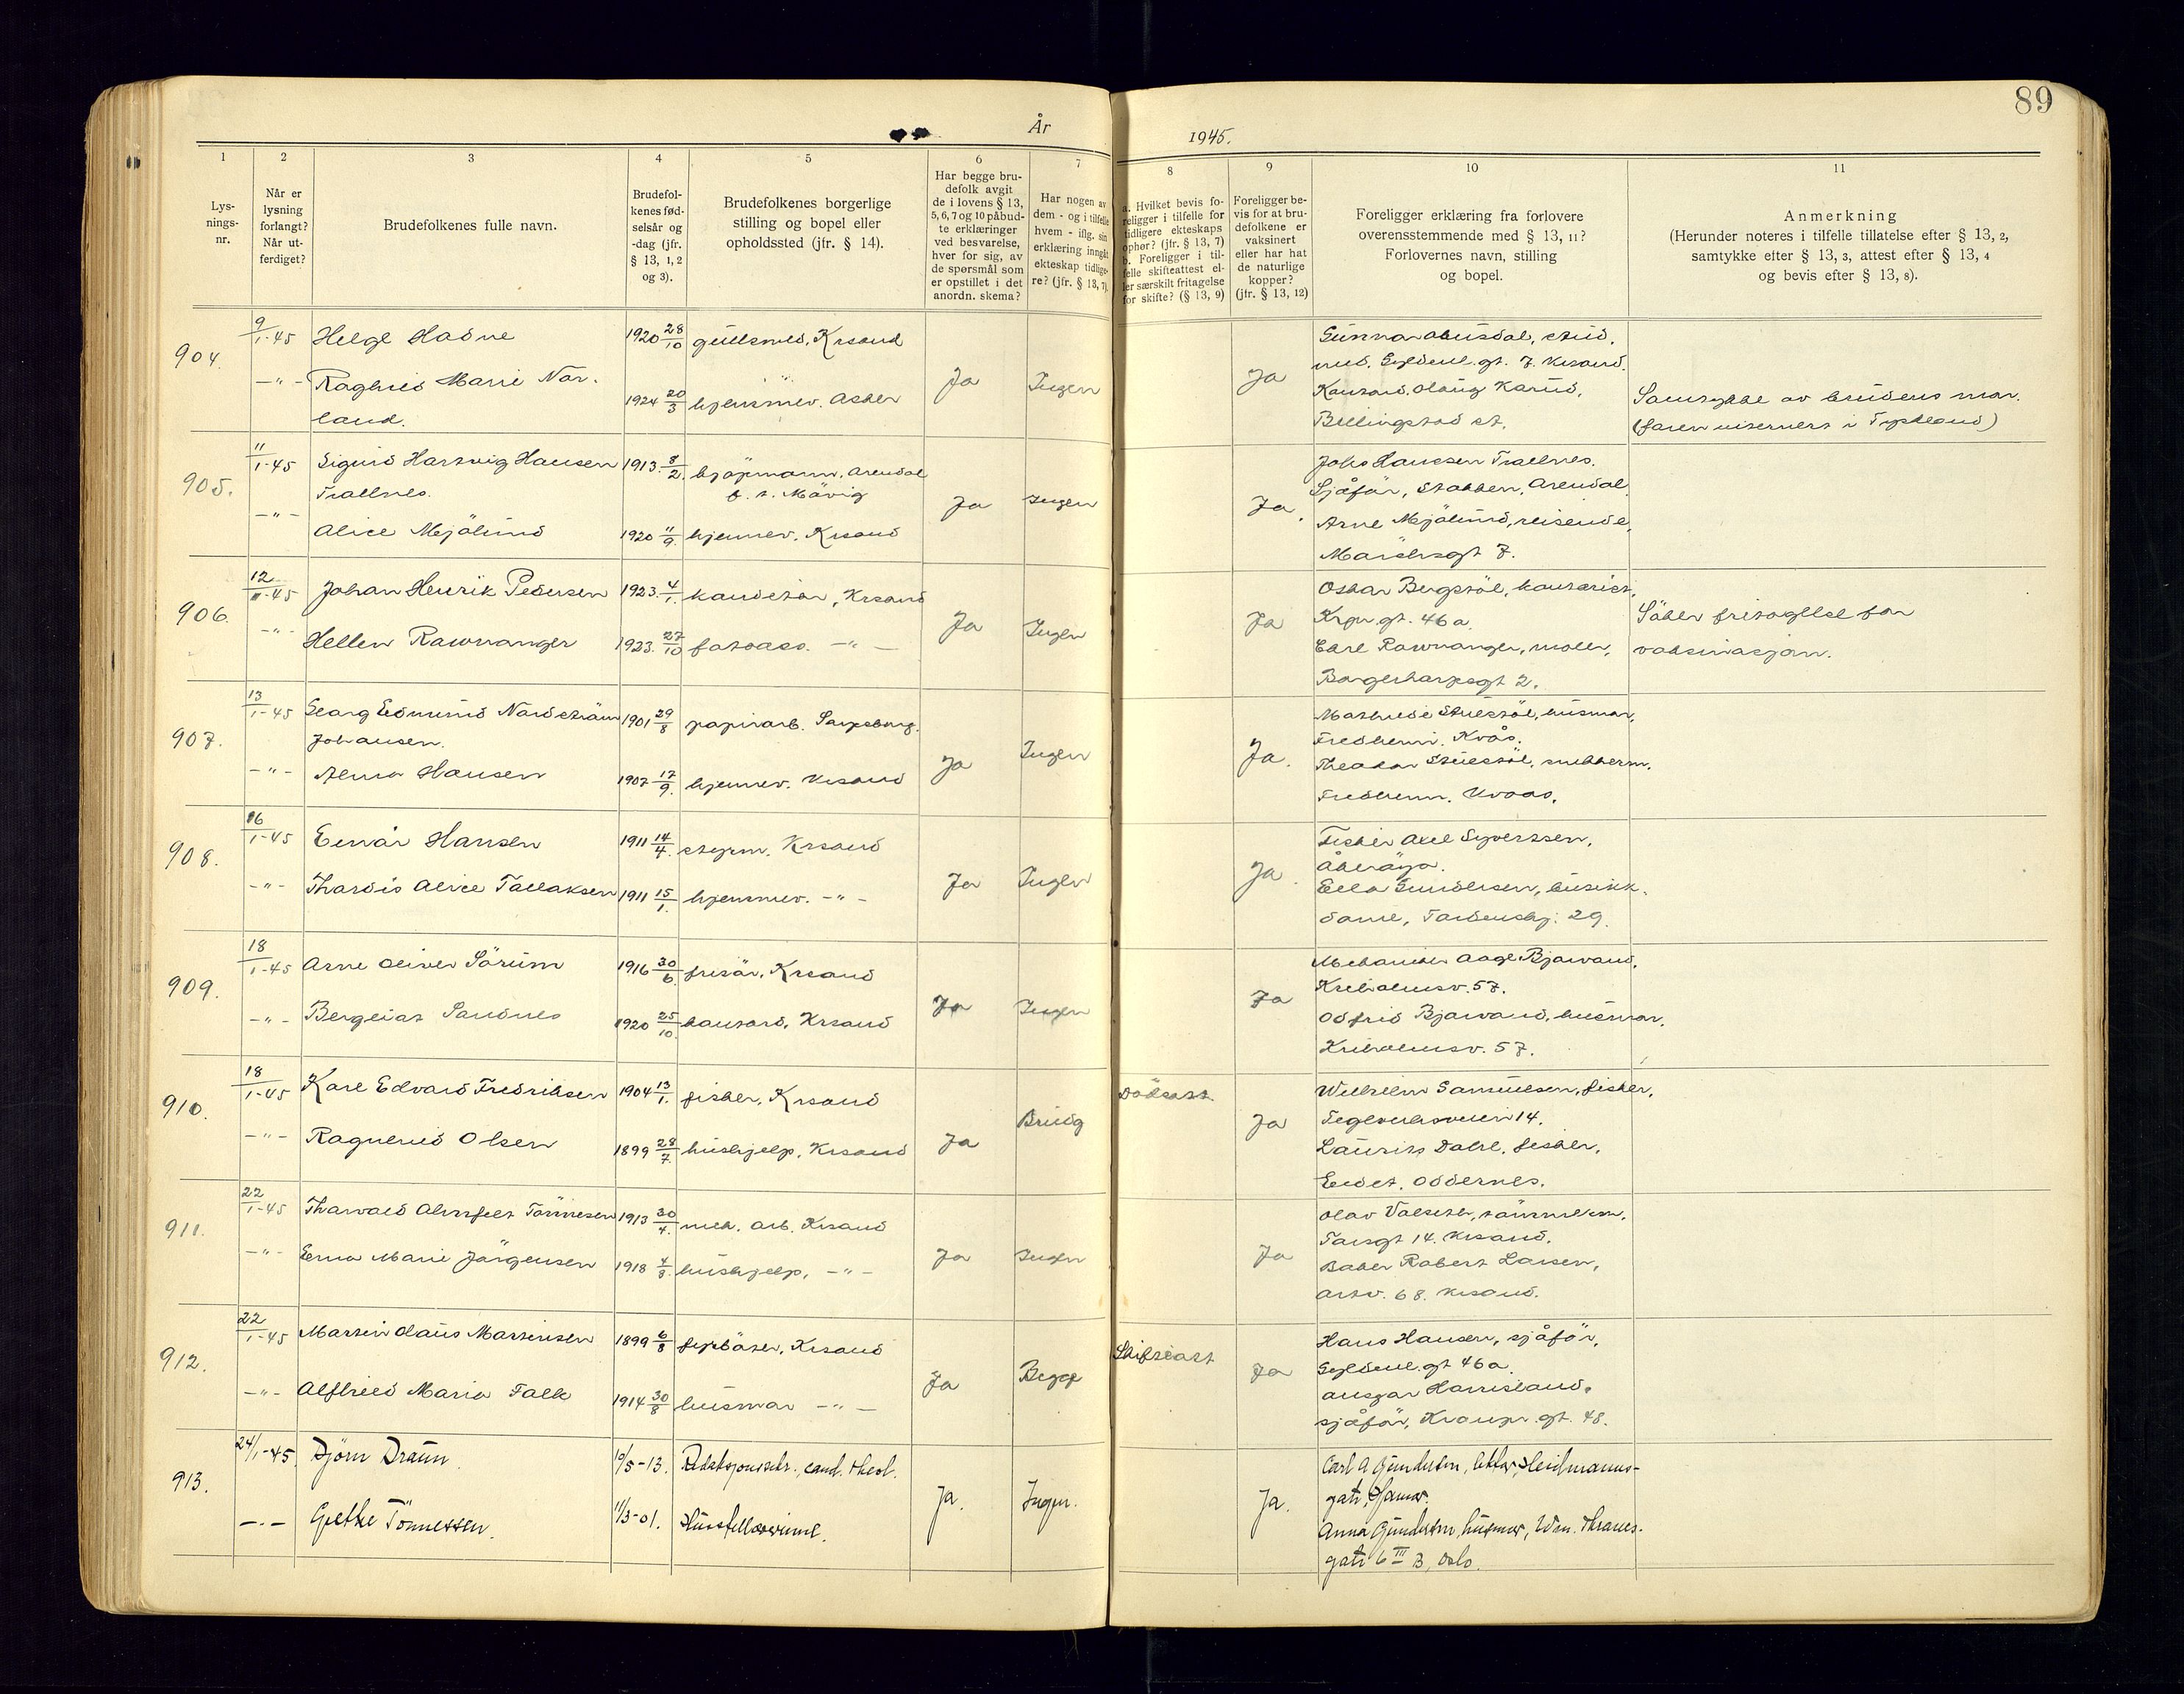 89
År 1945.
1 2 3 4 5 6 7 8 9 10 11
Lys-
nings-
nr.
Når er
lysning
forlangt?
Når ut-
ferdiget?
Brudefolkenes fulle navn.
Brudefol-
kenes fød-
selsår og
-dag (jfr.
§ 13, 1, 2
og 3).
Brudefolkenes borgerlige
stilling og bopel eller
opholdssted (jfr. § 14).
Har begge bru-
defolk avgit
de i lovens § 13,
5, 6, 7 og 10 påbud-
te erklæringer
ved besvarelse,
hver for sig, av
de spørsmål som
er opstillet i det
anordn. skema?
Har nogen av
dem - og i tilfelle
hvem - iflg. sin
erklæring inngått
ekteskap tidlige-
re? (jfr. § 13, 7).
a. Hvilket bevis fo-
religger i tilfelle for
tidligere ekteskaps
ophør? (jfr. § 13, 7)
b. Foreligger i til-
felle skifteattest el-
ler særskilt fritagelse
for skifte? (§ 13, 9)
Foreligger be-
vis for at bru-
defolkene er
vaksinert
eller har hat
de naturlige
kopper?
(jfr. § 13, 12)
Foreligger erklæring fra forlovere
overensstemmende med § 13, 11?
Forlovernes navn, stilling
og bopel.
Anmerkning
(Herunder noteres i tilfelle tillatelse efter § 13, 2,
samtykke efter § 13, 3, attest efter § 13, 4
og bevis efter § 13, 8).
904. 9/1-45 Helge Hadne 1920 28/10 gullsmed, Krsand
-"- Raghild Marie Nor-
land. 1924 20/3 hjemmev. Asker
Ja Ingen Ja
stud.
med. Gyldenl. gt. 7. Krsand.
Billingstad st.
Samtykke av brudens mor.
(faren internert i Tyskland)
905. 11/1-45 Sigurd Hartvig Hansen
Trællnes. 1913. 8/2. kjøpmann, Arendal
f. t. Måvig
-"- Alice Mjålund 1920 11/9. hjemmev. Krsand
Ja Ingen Ja.
Johs Hansen Trællnes.
Sjåfør, Stokken, Arendal.
Arne Mjålund, reisende,
Markensgt 7.
906. 12/1-45 Johan Henrik Pedersen 1923. 4/1. konditor, Krsand
-"- Hellen Rawnanger 1923. 27/10 fotoass. -"-
Ja Ingen Ja
Oskar Bergstøl, kontorist,
Krpr. gt. 46 a.
Rawnanger, maler,
2.
Søker fritagelse for
vaksinasjon.
907. 13/1-45 Georg Edmund Nordstrøm
Johansen. 1901 29/8 papirarb. Sarpsborg.
-"- Alma Hansen 1907 17/9. hjemmev. Krsand
Ja Ingen Ja.
Mathilde Stuestøl, husmor,
Fredheim. Kvås.
Theodor Stuestøl, snekkerm.
Fredheim. Kvaas.
908. 16/1-45 Einar Hansen 1911 14/4. styrm. Krsand
-"- Thordis Alice Tallaksen 1911 15/1. hjemmev. -"-
Ja Ingen Ja.
Fisker Axel Syvertsen,
Åkerøya.
Ella Gundersen, butikk-
dame, Tordenskj. 29.
909. 18/1-45 Arne Oliver Sørum 1916 30/6. frisør, Krsand
-"- Bergliot Sandnes 1920 25/10. kontord. Krsand
Ja Ingen Ja
Mekaniker Aage Bjorvand,
Kuholmsv. 57.
Odfrid Bjorvand, husmor,
Kuholmsv. 57.
910. 18/1-45 Karl Edvard Fredriksen 1904 13/1. fisker, Krsand
-"- Ragnhild Olsen 1899 28/7 hushjelp, Krsand
Ja Brudg Dødsatt. Ja
Wilhelm Samuelsen, fisker,
Teglverksveien 14.
Laurits Dahl, fisker,
Eidet. Oddernes.
911. 22/1-45 Thorvald Almfelt Tønnesen 1913 30/4. mek. arb. Krsand
-"- Erna Marie Jørgensen 1918 4/8. hushjelp, -"-
Ja Ingen Ja
Olav Valseth, tømmerm.
Torsgt 14. Krsand.
Baker Robert Larsen,
Artv. 68. Krsand.
912. 22/1-45 Martin Olaus Martinsen 1899 6/8 fyrbøter, Krsand
-"- Alfhild Maria Falk 1914 30/8 husmor -"-
Ja Begge Skifteatt Ja
Hans Hansen, sjåfør,
Gyldenl. gt 46 a.
Ansgar Harrisland,
sjåfør, Kronpr. gt. 48.
913. 24/1-45. Bjørn Draun 10/5-13. Redaksjonssekr., cand. theol.
-"- Grethe Tønnessen. 11/3-01. Husstellærerinne.
Ja. Ingen. Ja.
Carl A Gundersen, lektor, Heidmanns-
gate, Hamar.
Anna Gundersen, husmor, Wm. Thranes-
gate 6 III B, Oslo.